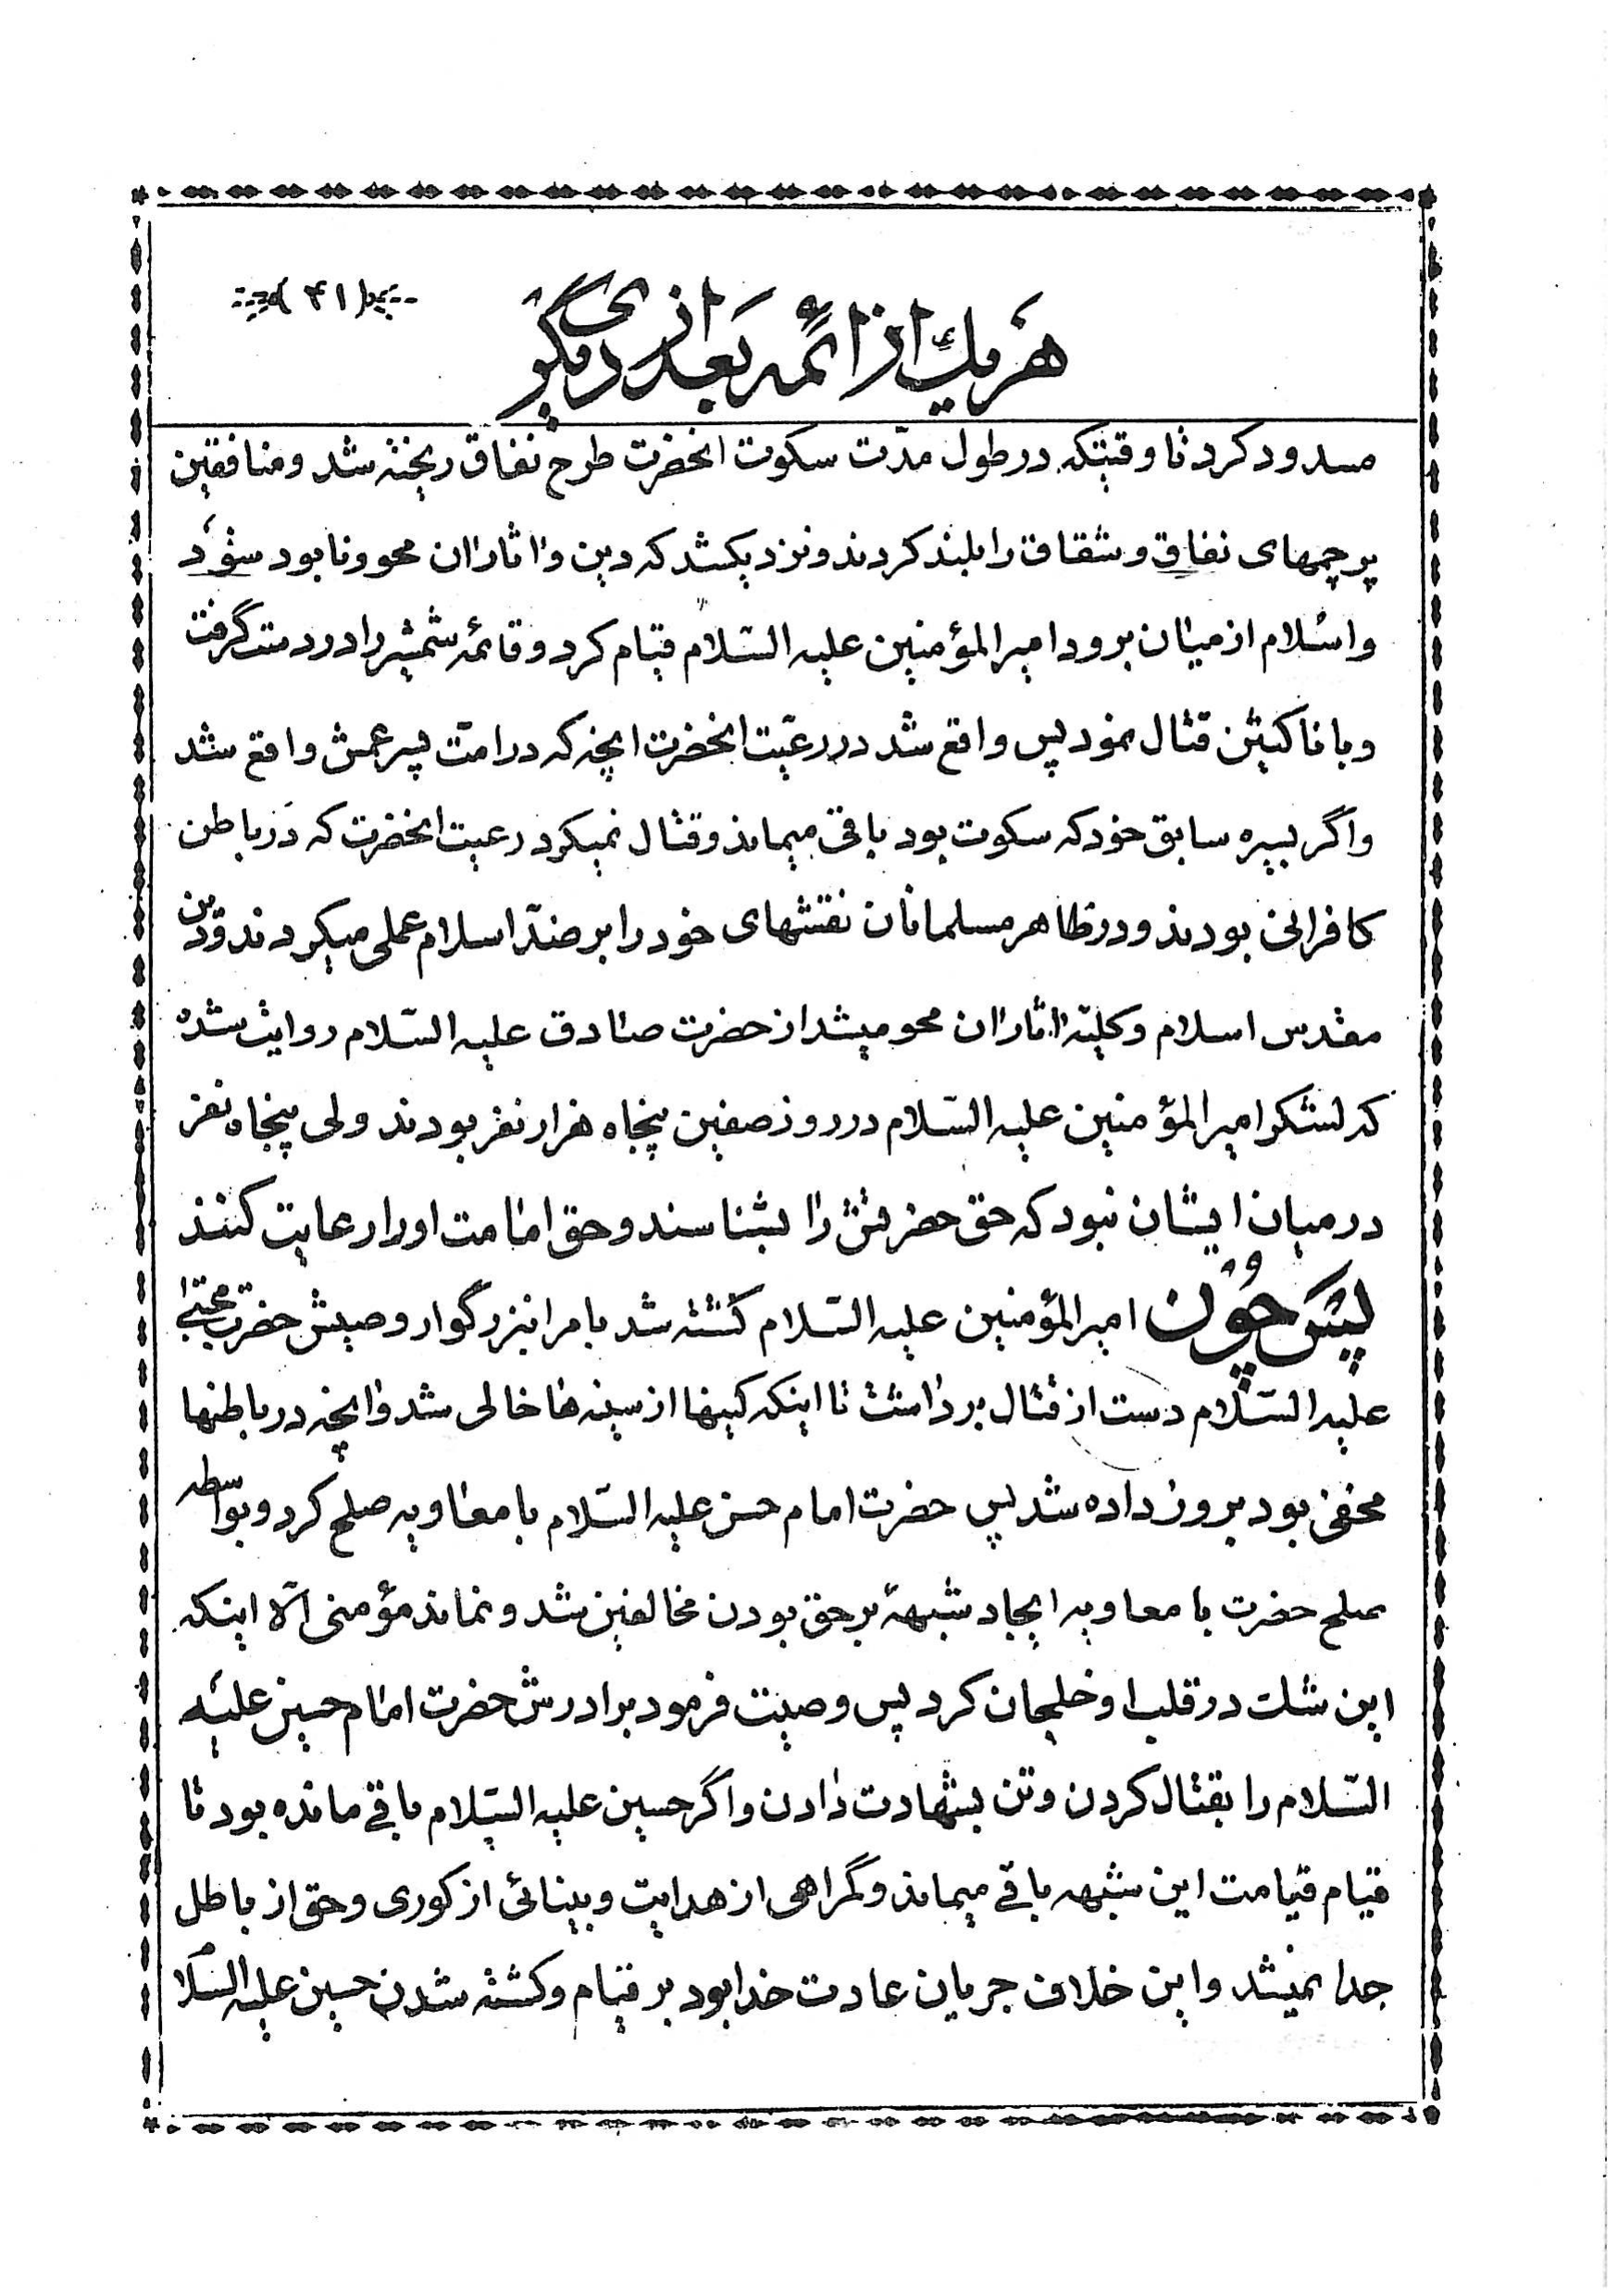 (۴۱)
هر یك از ائمه بعد از دیگری
مسدود کرد تا وقتیکه در طول مدّت سکوت انحضرت طرح نفاق ریخته شد و منافقین
پرچمهای نفاق و شقاق را بلند کردند و نزدیکشد که دین و اثار ان محو و نابود شود
و اسلام از میان برود امیرالمؤمنین علیه السّلام قیام کرد و قائمه شمشیر را در دست گرفت
و با ناکثین قتال نمود پس واقع شد در رعیّت انحضرت انچه که در امّت پسر عمش واقع شد
و اگر بسیره سابق خود که سکوت بود باقی میماند و قتال نمیکرد رعیت انحضرت که در باطن
کافرانی بودند و در ظاهر مسلمانان نقشهای خود را بر ضدّ اسلام عملی میکردند و دین
مقدس اسلام و کلیّه اثار ان محو میشد از حضرت صادق علیه السّلام روایت شده
که لشکر امیرالمؤمنین علیه السّلام در روز صفین پنجاه هزار نفر بودند ولی پنجاه نفر
در میان ایشان نبود که حق حضرتش را بشناسند و حق امامت او را رعایت کنند
پس چون امیرالمؤمنین علیه السّلام کشته شد بامر انبزرگوار وصیش حضرت مجتبی
علیه السّلام دست از قتال برداشت تا اینکه کینها از سینه ها خالی شد و انچه در باطنها
مخفی بود بروز داده شد پس حضرت امام حسن علیه السّلام با معاویه صلح کرد و بواسطه
صلح حضرت با معاویه ایجاد شبههٔ بر حق بودن مخالفین شد و نماند مؤمنی الا اینکه
این شك در قلب او خلجان کرد پس وصیت فرمود برادرش حضرت امام حسین علیه
السّلام را بقتال کردن و تن بشهادت دادن و اگر حسین علیه السّلام باقی مانده بود تا
قیام قیامت این شبهه باقی میماند و گمراهی از هدایت و بینائی از کوری و حق از باطل
جدا نمیشد و این خلاف جریان عادت خدا بود بر قیام و کشته شدن حسین علیه السّلام